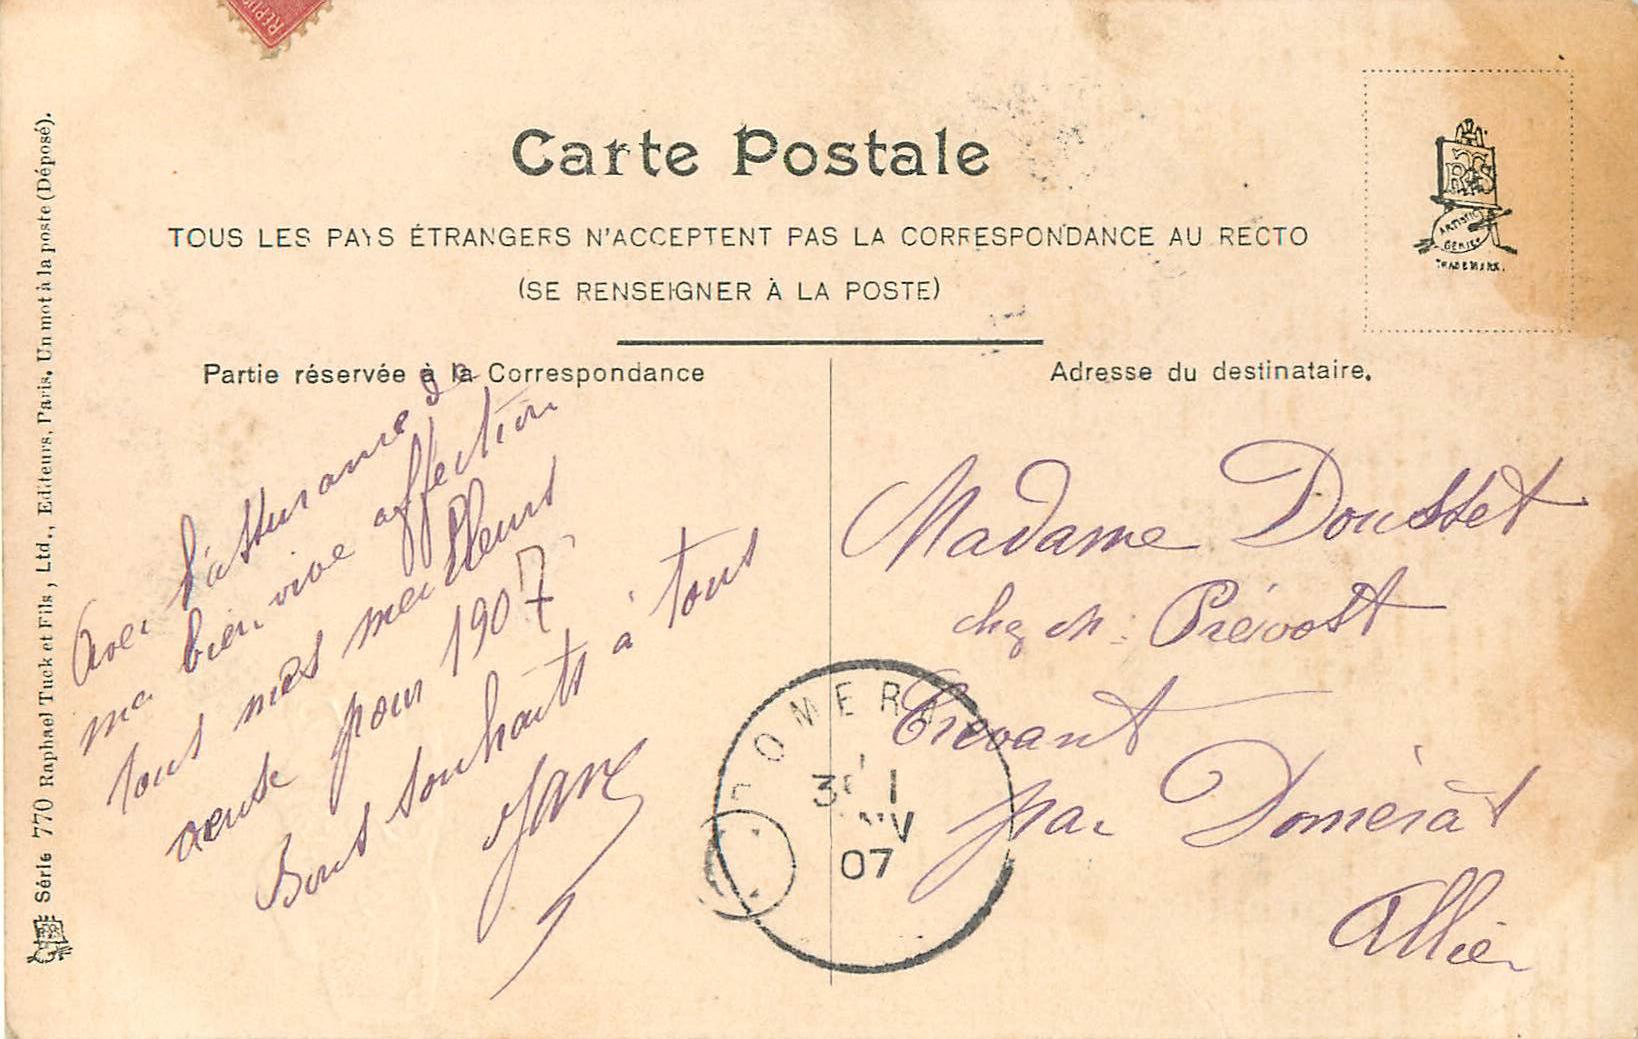 RÉPU
Carte Postale
TOUS LES PAYS ÉTRANGERS N'ACCEPTENT PAS LA CORRESPONDANCE AU RECTO
(SE RENSEIGNER À LA POSTE)
RTS
ARTISTIC
SERIES
TRADE MARK.
Partie réservée à la Correspondance
Adresse du destinataire.
Avec l'assurance de
ma bien vive affection
tous mes meilleurs
vœux pour 1907
Bons souhaits à tous
Jane
Madame Dousset
chez M. Prévost
Crevant
par Domérat
Allier
DOMERA
3 1
07
Série 770 Raphael Tuck et Fils, Ltd., Editeurs, Paris. Un mot à la poste (Déposé).